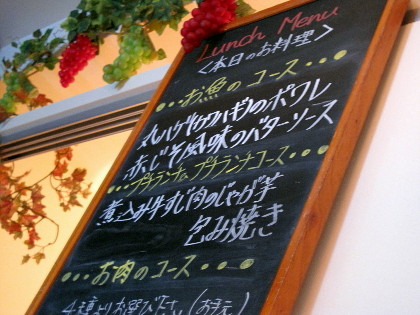 Lunch Menu
<本日のお料理>
・・・お魚のコース・・・
丸ハゲ(カワハギ)のポワレ
赤じそ風味のバターソース
・・・プチランチ&プチランチコース・・・
煮込み牛すじ肉のじゃが芋
包み焼き
・・・お肉のコース・・・
4種よりお選び下さい